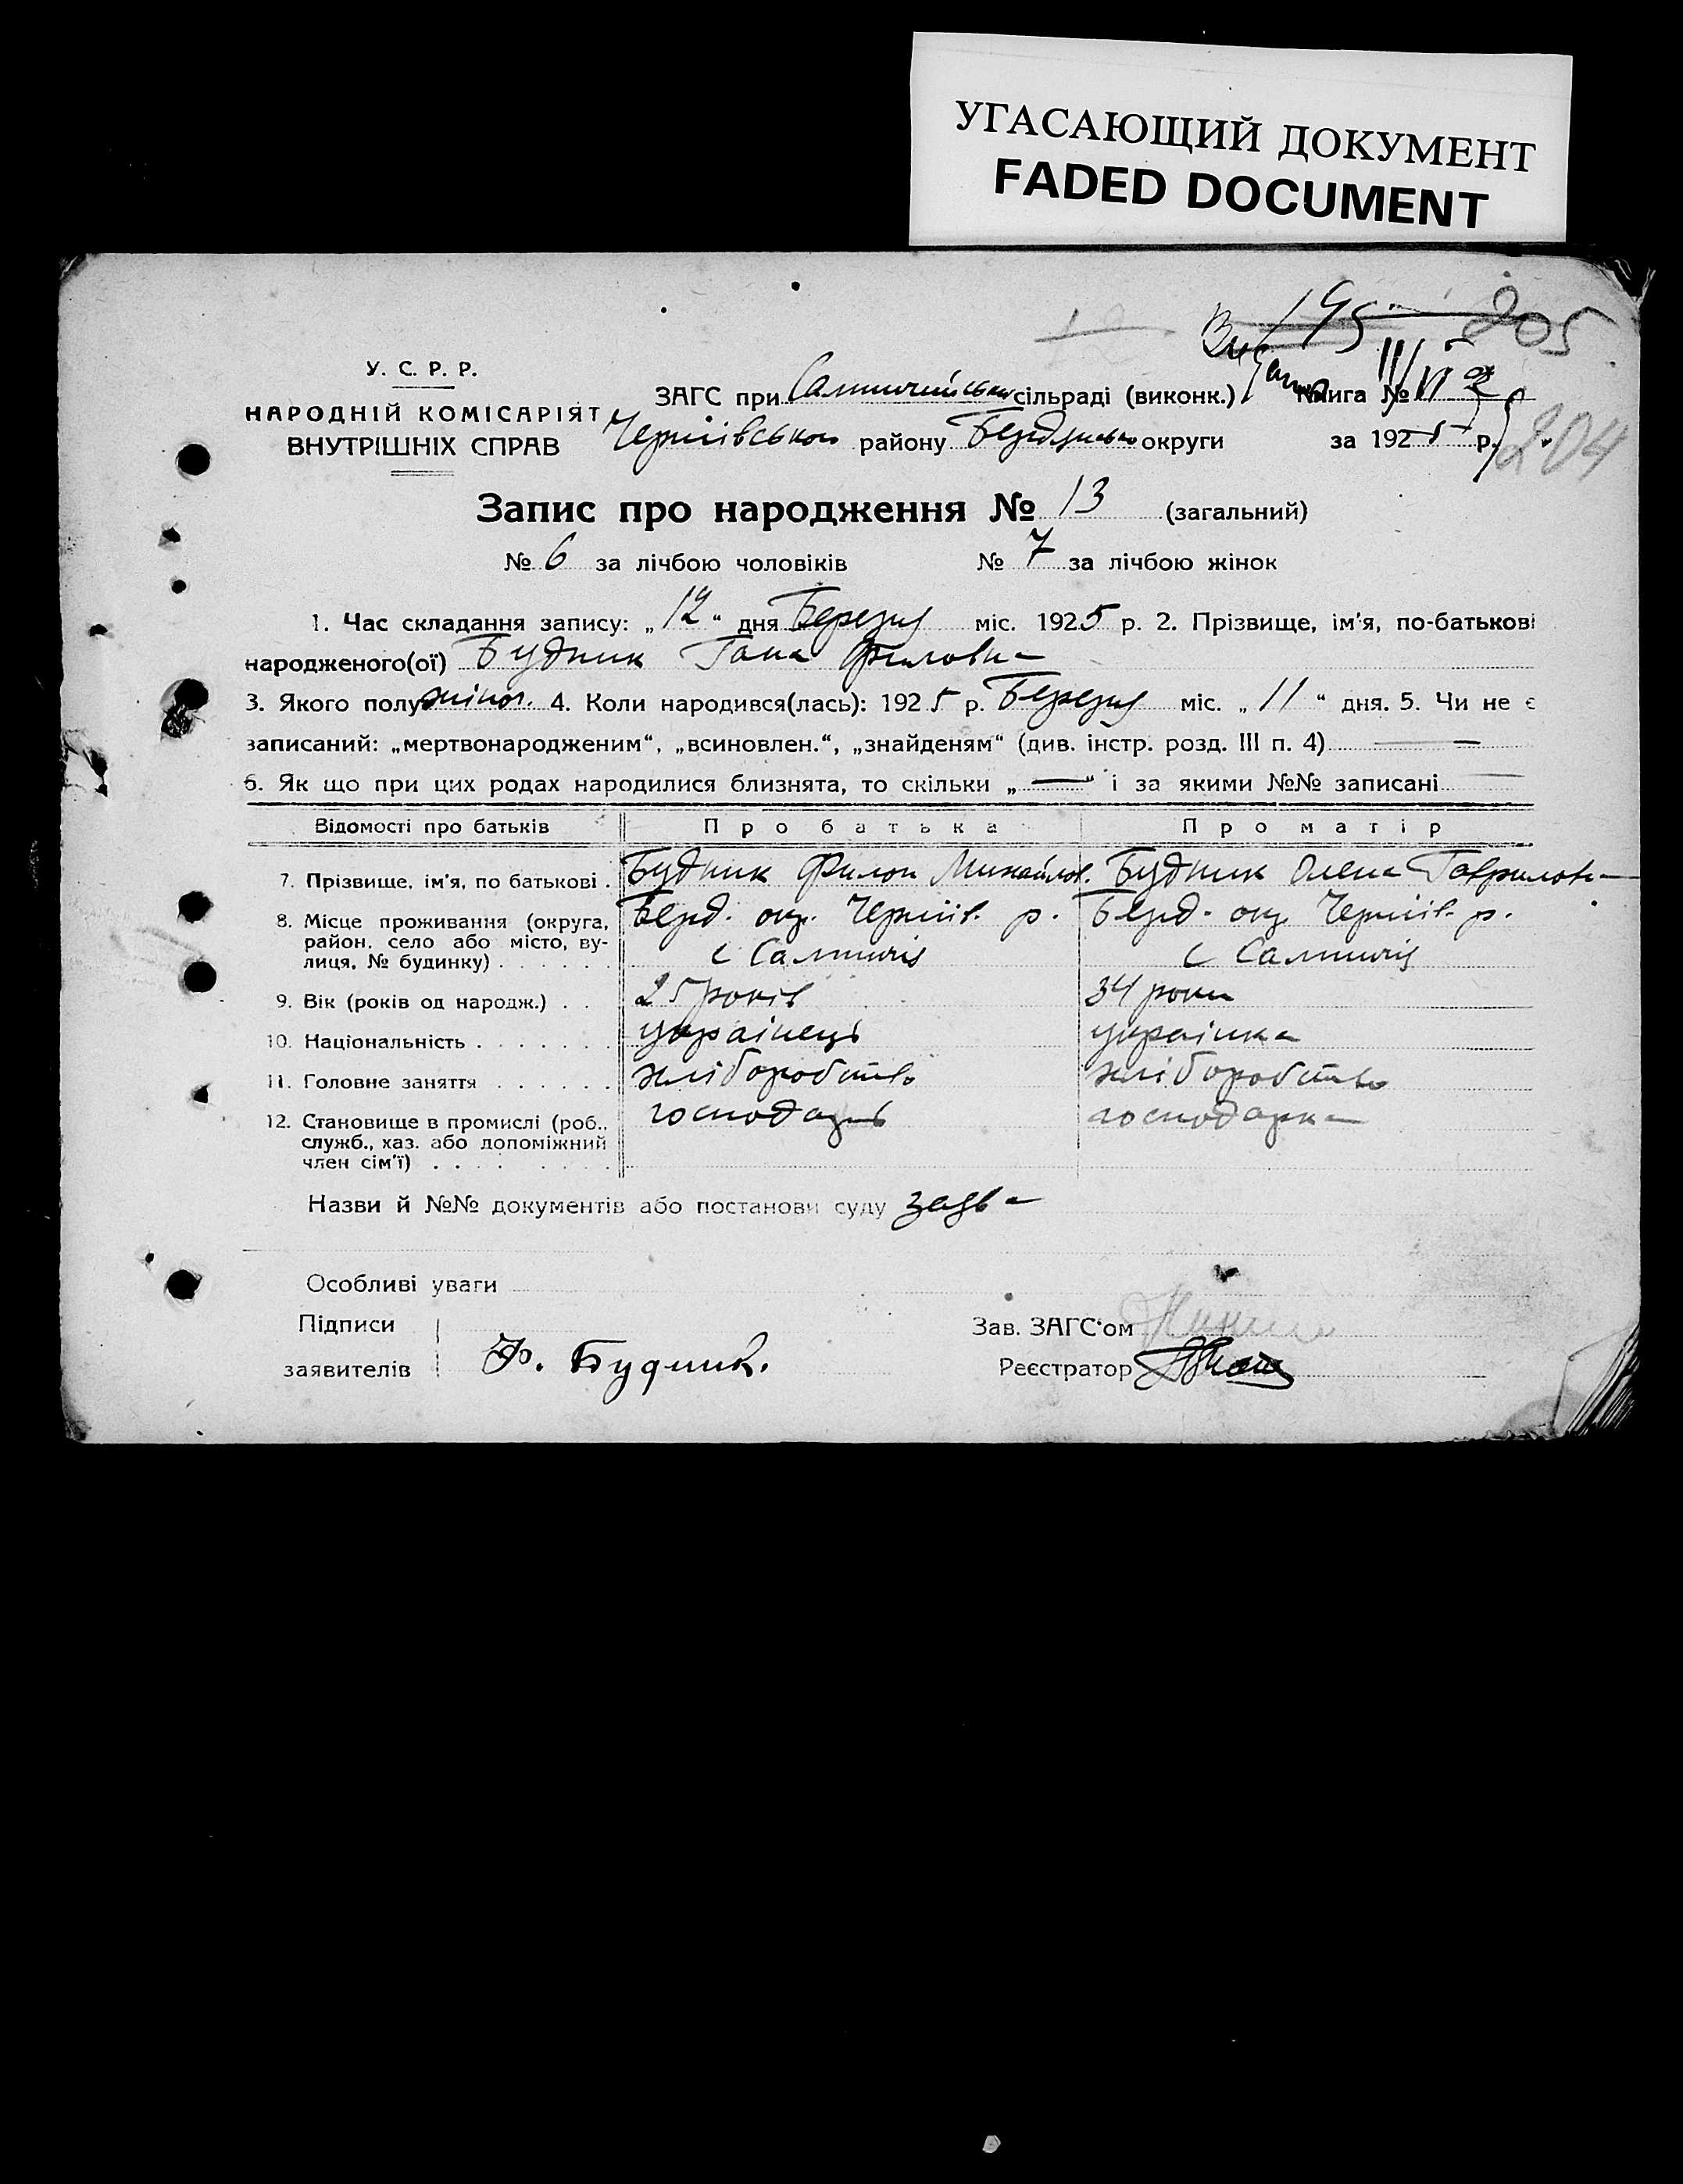 УГАСАЮЩИЙ ДОКУМЕНТ
FADED DOCUMENT
195 205
У. С. Р. Р.
НАРОДНІЙ КОМІСАРІЯТ
ВНУТРІШНІХ СПРАВ
ЗАГС при сільраді (виконк.) Книга №
району округи за 1925 р. 204
Запис про народження № 13 (загальний)
№ 6 за лічбою чоловіків № 7 за лічбою жінок
1. Час складання запису: „12“ дня Березня міс. 1925 р. 2. Прізвище, ім'я, по-батькові
народженого(ої) Будник Гана Филовна
3. Якого полу жіноч. 4. Коли народився(лась): 1925 р. Березня міс. „11“ дня. 5. Чи не є
записаний: „мертвонародженим“, „всиновлен.“, „знайденям“ (див. інстр. розд. III п. 4) —
6. Як що при цих родах народилися близнята, то скільки „—“ і за якими №№ записані
Відомості про батьків Про батька Про матір
7. Прізвище, ім'я, по батькові . Будник Филон Михайлов. Будник Олена Гавриловна
8. Місце проживання (округа, район, село або місто, вулиця, № будинку) . . . . . . Берд. окр. Черніів. р. Берд. окр. Черніів. р.
с с
9. Вік (років од народж.) . . 25 років 34 роки
10. Національність . . . . . . . украінець украінка
11. Головне заняття . . . . . . хліборобство хліборобство
12. Становище в промислі (роб., служб., хаз. або допоміжний член сім'ї) . . . . . . . . господарь господарка
Назви й №№ документів або постанови суду заява
Особливі уваги
Підписи
заявителів Ф. Будник.
Зав. ЗАГС'ом
Реєстратор